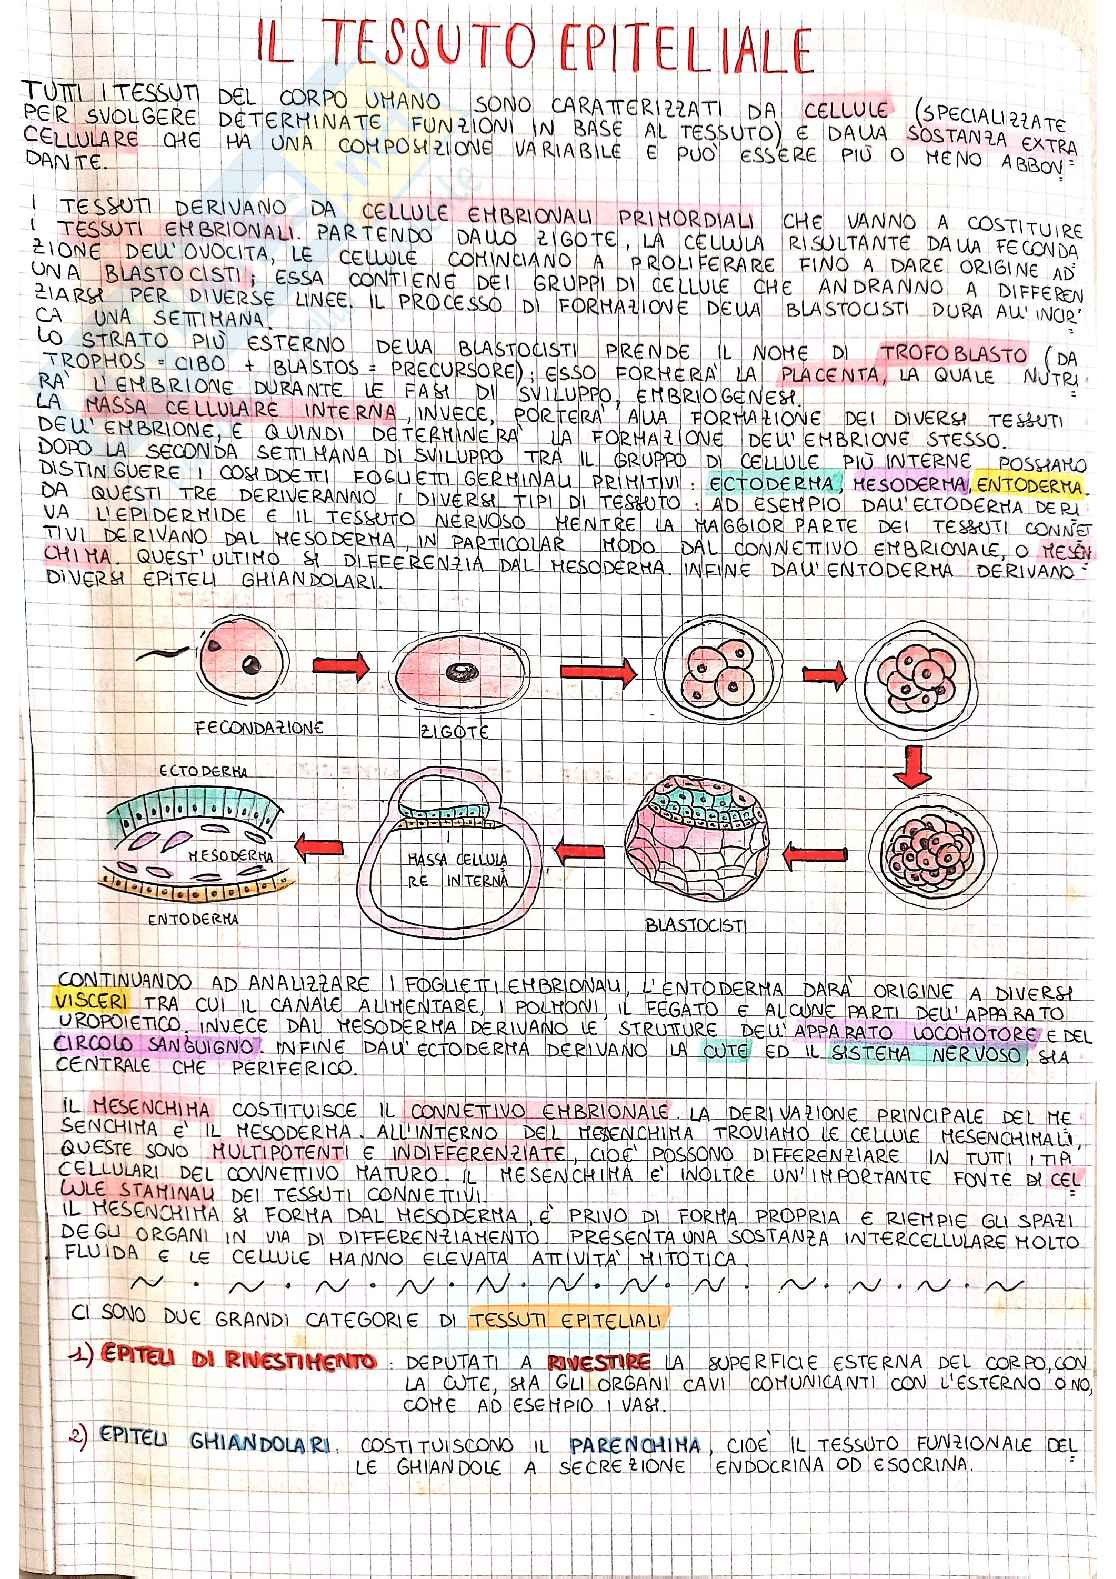 IL TESSUTO EPITELIALE
TUTTI I TESSUTI DEL CORPO UMANO SONO CARATTERIZZATI DA CELLULE (SPECIALIZZATE
PER SVOLGERE DETERMINATE FUNZIONI IN BASE AL TESSUTO) E DALLA SOSTANZA EXTRA
CELLULARE CHE HA UNA COMPOSIZIONE VARIABILE E PUÒ ESSERE PIÙ O MENO ABBON=
DANTE.
I TESSUTI DERIVANO DA CELLULE EMBRIONALI PRIMORDIALI CHE VANNO A COSTITUIRE
I TESSUTI EMBRIONALI. PARTENDO DALLO ZIGOTE, LA CELLULA RISULTANTE DALLA FECONDA
ZIONE DELL'OVOCITA, LE CELLULE COMINCIANO A PROLIFERARE FINO A DARE ORIGINE AD
UNA BLASTOCISTI; ESSA CONTIENE DEI GRUPPI DI CELLULE CHE ANDRANNO A DIFFEREN
ZIARSI PER DIVERSE LINEE. IL PROCESSO DI FORMAZIONE DELLA BLASTOCISTI DURA ALL'INCIR=
CA UNA SETTIMANA.
LO STRATO PIÙ ESTERNO DELLA BLASTOCISTI PRENDE IL NOME DI TROFOBLASTO (DA
TROPHOS = CIBO + BLASTOS = PRECURSORE); ESSO FORMERÀ LA PLACENTA, LA QUALE NUTRI
RÀ L'EMBRIONE DURANTE LE FASI DI SVILUPPO, EMBRIOGENESI.
LA MASSA CELLULARE INTERNA, INVECE, PORTERÀ ALLA FORMAZIONE DEI DIVERSI TESSUTI
DELL'EMBRIONE, E QUINDI DETERMINERÀ LA FORMAZIONE DELL'EMBRIONE STESSO.
DOPO LA SECONDA SETTIMANA DI SVILUPPO TRA IL GRUPPO DI CELLULE PIÙ INTERNE POSSIAMO
DISTINGUERE I COSIDDETTI FOGLIETTI GERMINALI PRIMITIVI: ECTODERMA, MESODERMA, ENTODERMA.
DA QUESTI TRE DERIVERANNO I DIVERSI TIPI DI TESSUTO: AD ESEMPIO DALL'ECTODERMA DERI
VA L'EPIDERMIDE E IL TESSUTO NERVOSO MENTRE LA MAGGIOR PARTE DEI TESSUTI CONNET
TIVI DERIVANO DAL MESODERMA, IN PARTICOLAR MODO DAL CONNETTIVO EMBRIONALE, O MESEN
CHIMA. QUEST'ULTIMO SI DIFFERENZIA DAL MESODERMA. INFINE DALL'ENTODERMA DERIVANO
DIVERSI EPITELI GHIANDOLARI.
FECONDAZIONE
ZIGOTE
ECTODERMA
MESODERMA
ENTODERMA
MASSA CELLULA
RE INTERNA
BLASTOCISTI
CONTINUANDO AD ANALIZZARE I FOGLIETTI EMBRIONALI, L'ENTODERMA DARÀ ORIGINE A DIVERSI
VISCERI TRA CUI IL CANALE ALIMENTARE, I POLMONI, IL FEGATO E ALCUNE PARTI DELL'APPARATO
UROPOIETICO. INVECE DAL MESODERMA DERIVANO LE STRUTTURE DELL'APPARATO LOCOMOTORE E DEL
CIRCOLO SANGUIGNO. INFINE DALL'ECTODERMA DERIVANO LA CUTE ED IL SISTEMA NERVOSO, SIA
CENTRALE CHE PERIFERICO.
IL MESENCHIMA COSTITUISCE IL CONNETTIVO EMBRIONALE. LA DERIVAZIONE PRINCIPALE DEL ME
SENCHIMA È IL MESODERMA. ALL'INTERNO DEL MESENCHIMA TROVIAMO LE CELLULE MESENCHIMALI,
QUESTE SONO MULTIPOTENTI E INDIFFERENZIATE, CIOÈ POSSONO DIFFERENZIARE IN TUTTI I TIPI
CELLULARI DEL CONNETTIVO MATURO. IL MESENCHIMA È INOLTRE UN'IMPORTANTE FONTE DI CEL
LULE STAMINALI DEI TESSUTI CONNETTIVI.
IL MESENCHIMA SI FORMA DAL MESODERMA, È PRIVO DI FORMA PROPRIA E RIEMPIE GLI SPAZI
DEGLI ORGANI IN VIA DI DIFFERENZIAMENTO. PRESENTA UNA SOSTANZA INTERCELLULARE MOLTO
FLUIDA E LE CELLULE HANNO ELEVATA ATTIVITÀ MITOTICA.
CI SONO DUE GRANDI CATEGORIE DI TESSUTI EPITELIALI
1) EPITELI DI RIVESTIMENTO: DEPUTATI A RIVESTIRE LA SUPERFICIE ESTERNA DEL CORPO, CON
LA CUTE, SIA GLI ORGANI CAVI COMUNICANTI CON L'ESTERNO O NO,
COME AD ESEMPIO I VASI.
2) EPITELI GHIANDOLARI. COSTITUISCONO IL PARENCHIMA, CIOÈ IL TESSUTO FUNZIONALE DEL=
LE GHIANDOLE A SECREZIONE ENDOCRINA OD ESOCRINA.